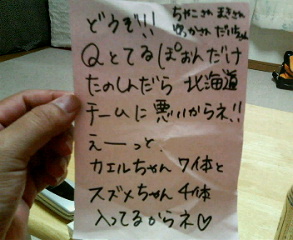 どうぞ!!
ちゃこさん まきさん
ゆっかさん だいちゃん
Qとてるぽぉんだけ
たのしんだら 北海道
チームに悪いからネ!!
えーっと、
カエルちゃん 7体と
スズメちゃん 4体
入ってるからネ♡